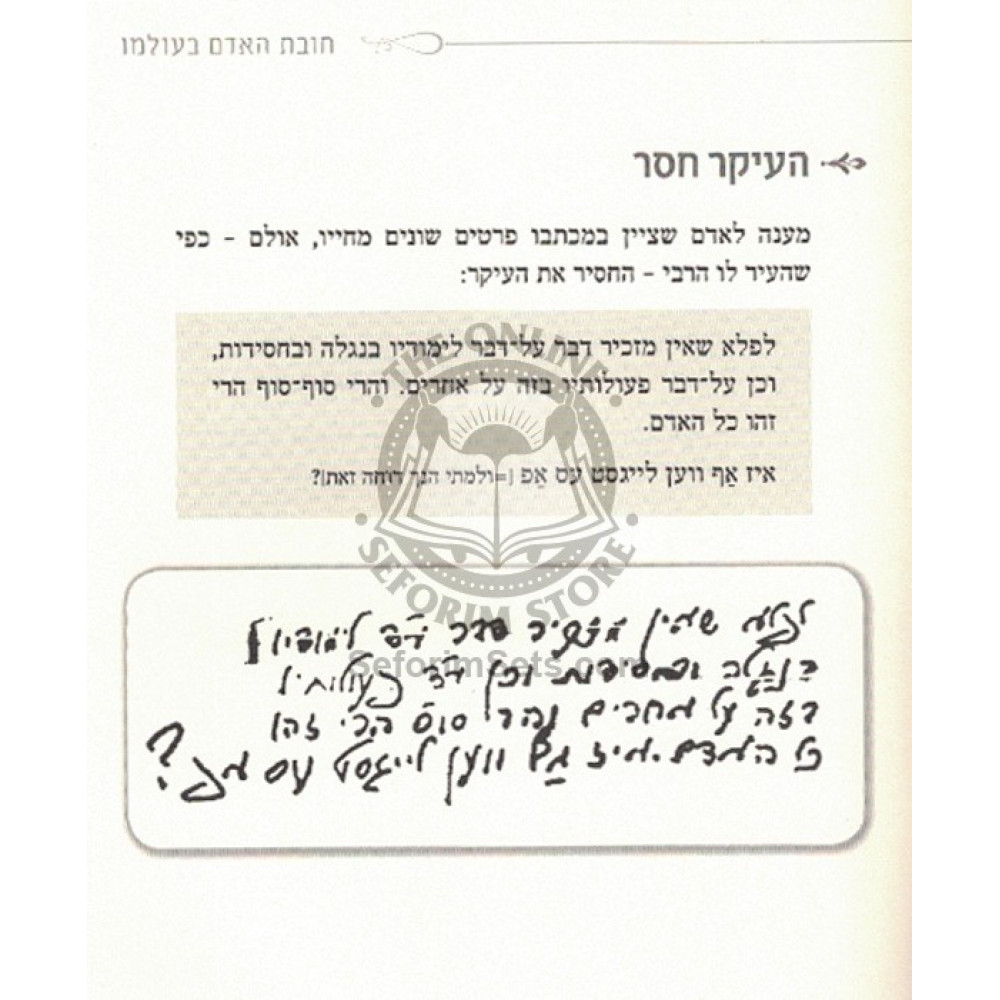 חובת האדם בעולמו
העיקר חסר
מענה לאדם שציין במכתבו פרטים שונים מחייו, אולם - כפי
שהעיר לו הרבי - החסיר את העיקר:
לפלא שאין מזכיר דבר על־דבר לימודיו בנגלה ובחסידות,
וכן על־דבר פעולותיו בזה על אחרים. והרי סוף־סוף הרי
זהו כל האדם.
איז אַף ווען לייגסט עס אַפ [=ולמתי הנך דוחה זאת]?
THE ONLINE
SEFORIM STORE
SeforimSets.com
לפלא שאין מזכיר דבר ע"ד לימודיו
בנגלה ובחסידות וכן ע"ד פעולותיו
בזה על אחרים והרי סו"ס הרי זהו
כל האדם. איז אַף ווען לייגסט עס אפ?